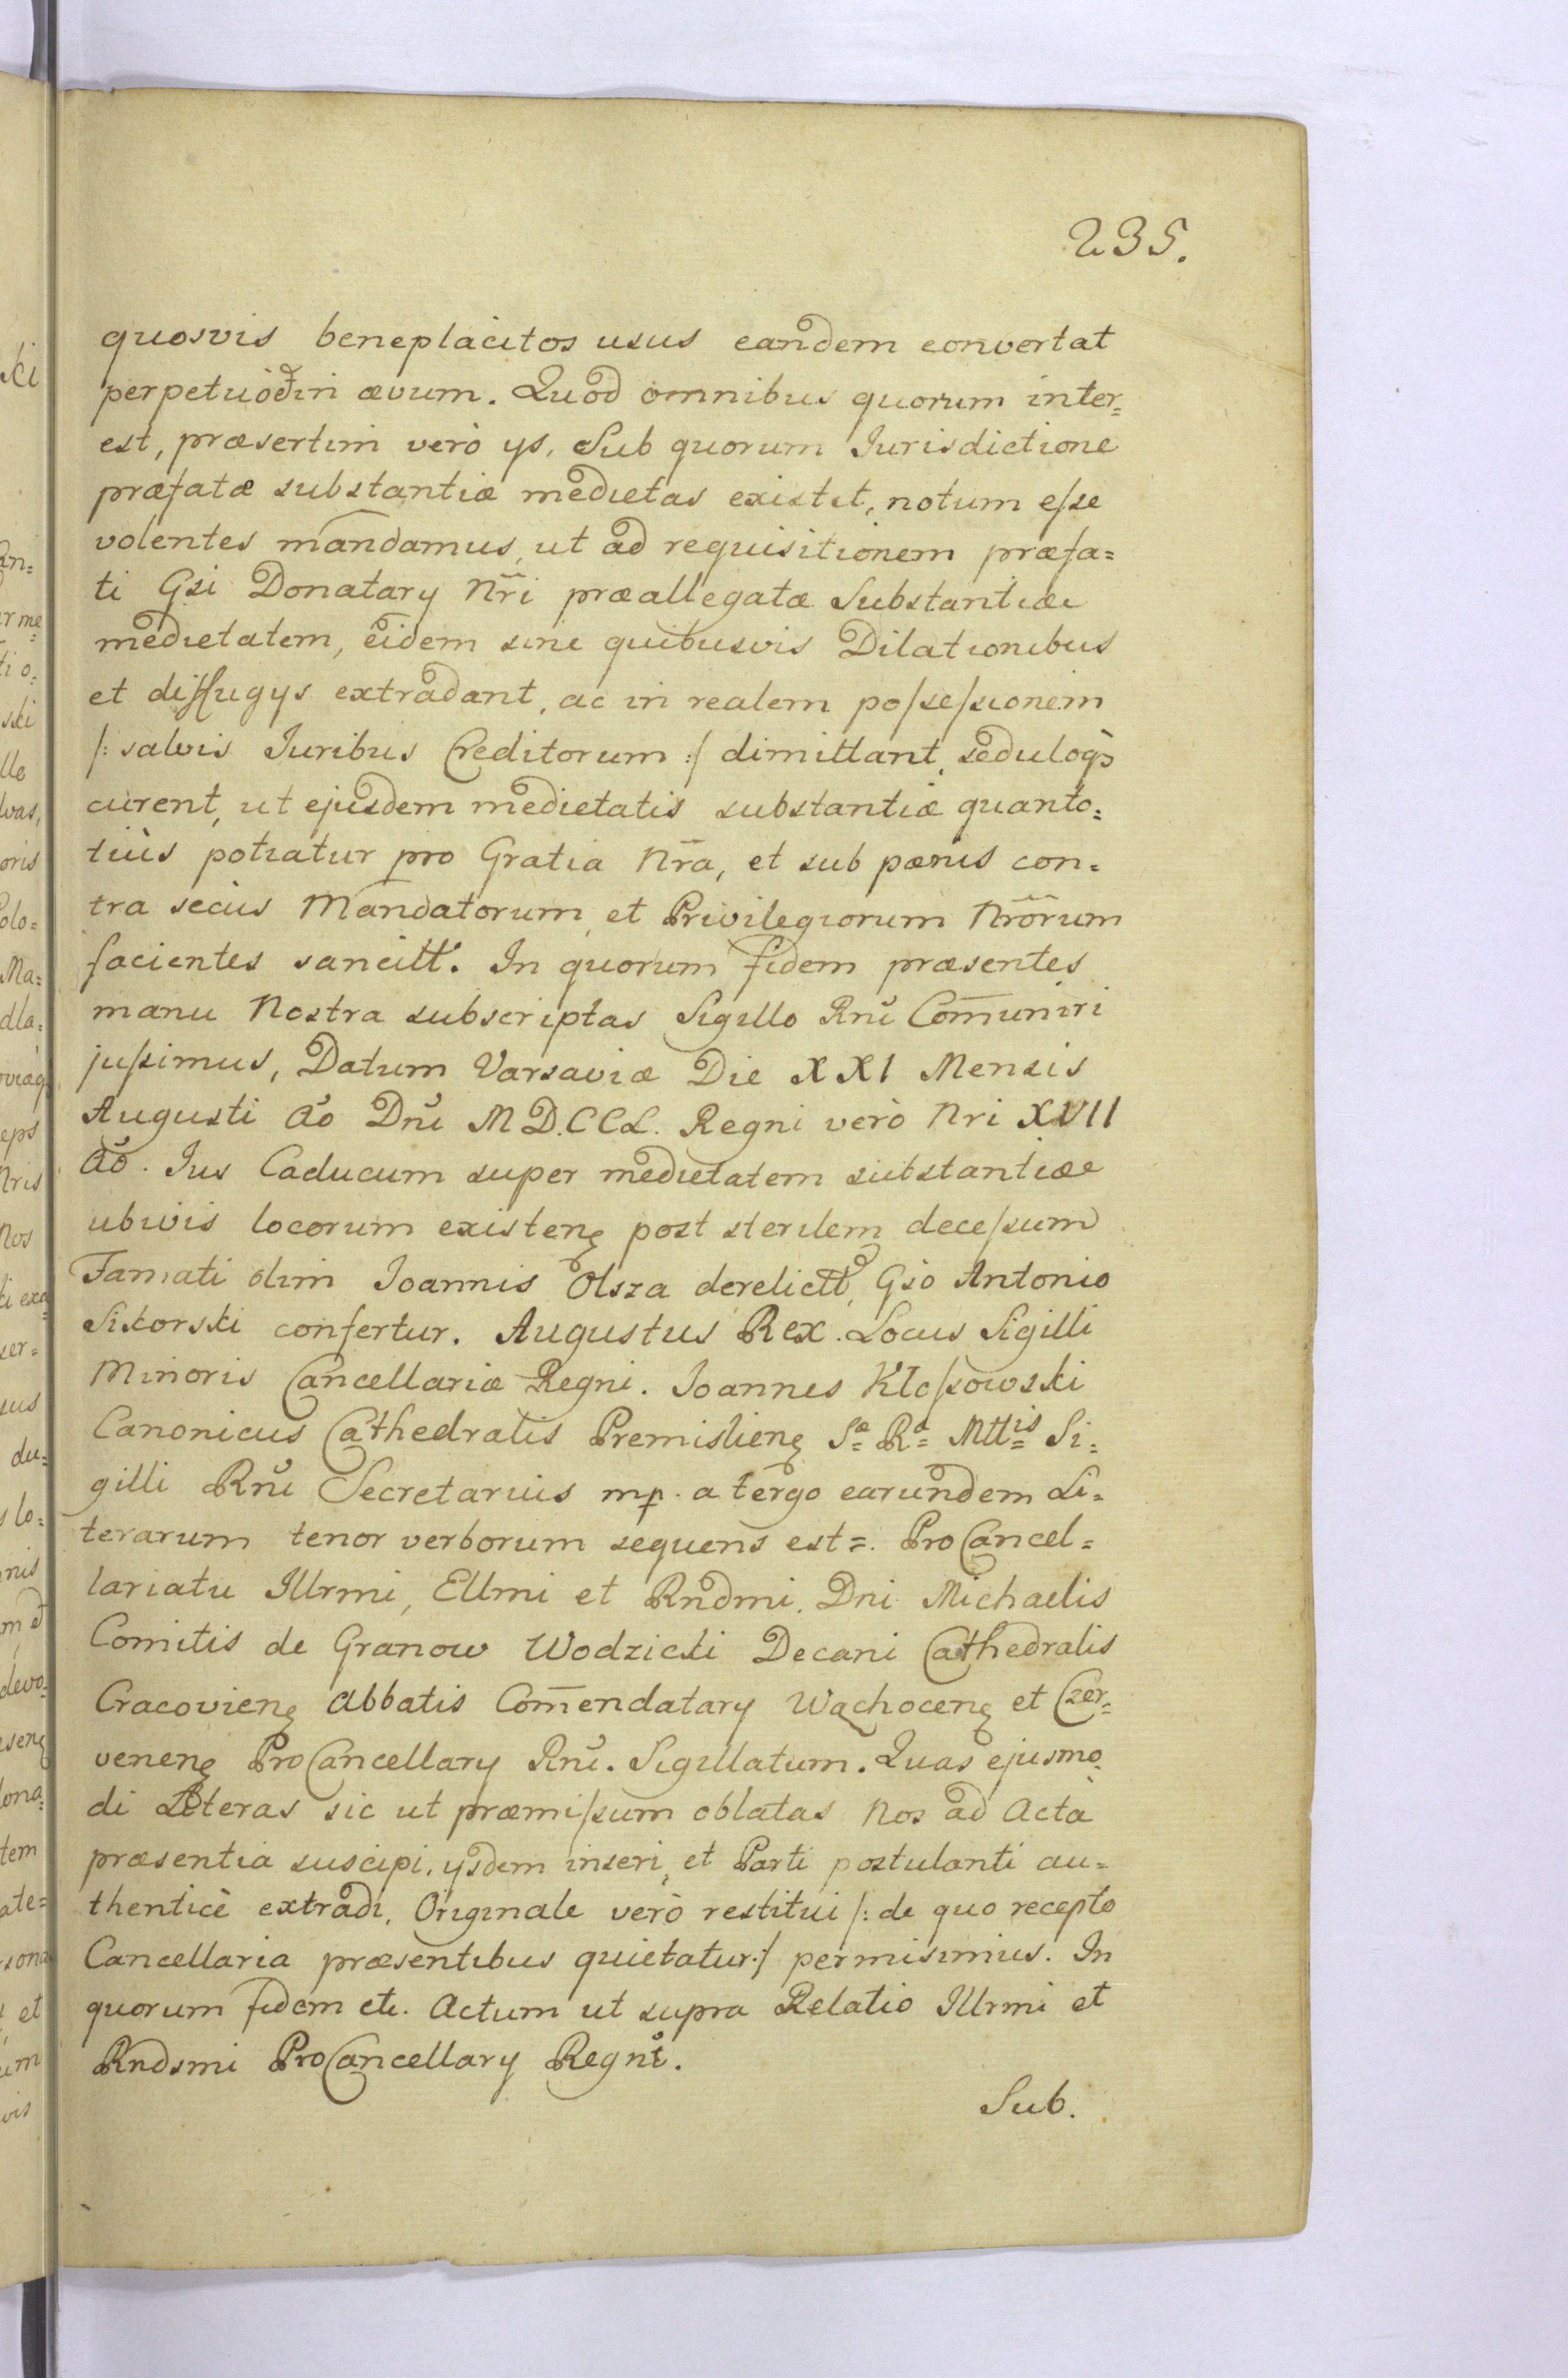 235.
quosvis beneplacitos usus eandem convertat
perpetuò&in ævum. Quod omnibus quorum inter=
est, præsertim verò ys, Sub quorum Jurisdictione
præfatæ substantiæ medietas existit, notum eſse
volentes mandamus, ut ad requisitionem præfa=
ti Gsi Donatary Nr̃i præallegatæ Substantiæ
medietatem, eidem sine quibusvis Dilationibus
et diffugys extradant, ac in realem poſseſsionem
/: salvis Juribus Creditorum :/ dimittant, seduloq̀3
curent, ut ejusdem medietatis substantiæ quanto=
tiùs potiatur pro Gratia Nr̃a, et sub pœnis con=
tra secùs Mandatorum, et Privilegiorum Nrõrum
facientes sancitt. In quorum fidem præsentes
manu Nostra subscriptas Sigillo Rnĩ Com̃uniri
juſsimus, Datum Varsaviæ Die XXI Mensis
Augusti Aõ Dnĩ MD.CCL. Regni verò Nri XVII
Aõ. Jus Caducum super medietatem substantiæ
ubivis locorum existenꝫ post sterilem deceſsum
Famati olim Joannis Olsza derelictt, Gso Antonio
Sikorski confertur. Augustus Rex. Locus Sigilli
Minoris Cancellariæ Regni. Joannes Kłoſsowski
Canonicus Cathedralis Premislienꝫ Sæ= Ræ= Mttis= Si=
gilli Rnĩ Secretarius mp. a tergo earundem Li=
terarum tenor verborum sequens est=. ProCancel=
lariatu Illrmi, Ellmi et Rndmi. Dni Michaelis
Comitis de Granow Wodzicki Decani Cathedralis
Cracovienꝫ Abbatis Com̃endatary Wąchocenꝫ et Czer=
venenꝫ ProCancellary Rnĩ. Sigillatum. Quas ejusmo=
di Literas sic ut præmiſsum oblatas Nos ad Acta
præsentia suscipi, ysdem inseri, et Parti postulanti au=
thenticè extradi, Originale verò restitui /: de quo recepto
Cancellaria præsentibus quietatur :/ permisimus. In
quorum fidem etc. Actum ut supra Relatio Illrmi et
Rndsmi ProCancellary Regni.
Sub.